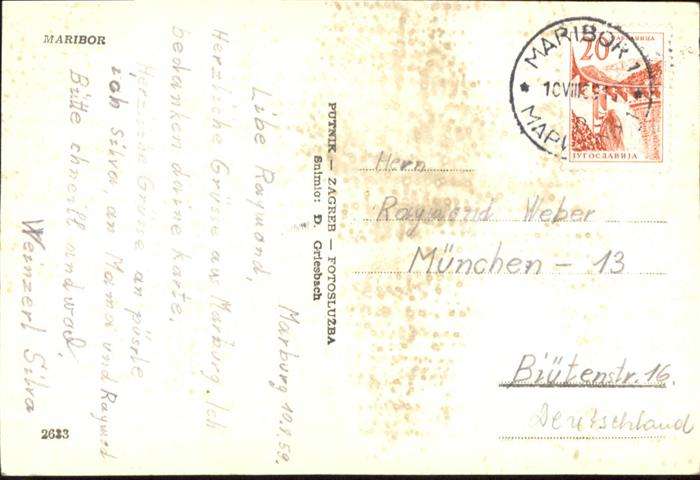 MARIBOR
Marburg 10.8.59.
Libe Raymond,
Herzliche Grüsse aus Marburg. Ich
bedanken deine karte.
Herzliche Grüsse an
ich Silva, an Mama und Raymond
Bitte schneill und
Weinzerl Silva
2633
PUTNIK — ZAGREB — FOTOSLUŽBA
Snimio: D. Griesbach
MARIBOR 1
10 VIII 59
20
ЈУГОСЛАВИЈА
JUGOSLAVIJA
Herrn
Raymond Weber
München - 13
Blütenstr. 16.
Deutschland